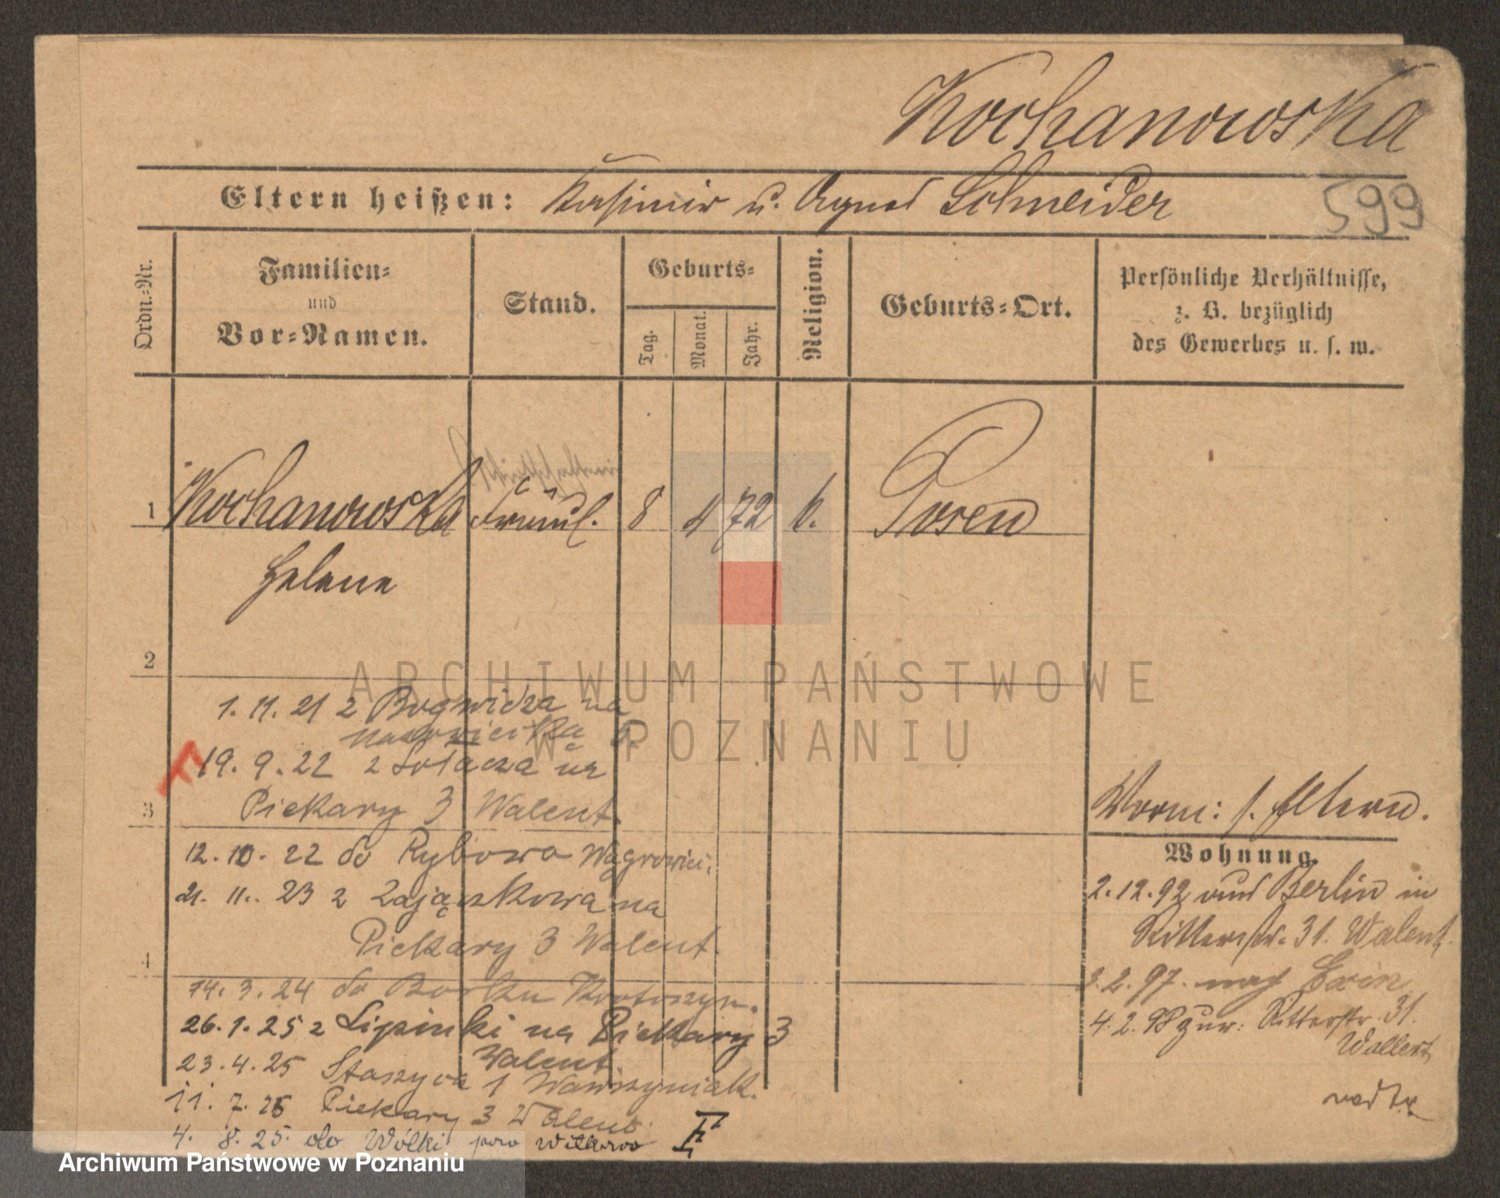 Kochanowska
599
Eltern heißen: Kasimir u. Agnes Schneider
Ordn.-Nr.
Familien-
und
Vor-Namen.
Stand.
Geburts-
Tag.
Monat.
Jahr.
Religion.
Geburts-Ort.
Persönliche Verhältnisse,
z. B. bezüglich
des Gewerbes u. s. w.
1 Kochanowska Fräul. 8 4 72 k. Posen
Helene
2
1. 11. 21 z na
19. 9. 22 z Sołacza na
3 Piekary 3 Walent.
12. 10. 22 do Rybowo Wągrowiec
21. 11. 23 z Zajączkowa na
Piekary 3 Walent.
4
14. 3. 24 do Borku Krotoszyn.
26. 1. 25 z Lipinki na Piekary 3
Walent.
23. 4. 25 Staszyca 1 Wawrzyniak.
11. 7. 25 Piekary 3 Walent.
4. 8. 25. do Wólki pow Witkowo
Vorm: s. Eltern.
Wohnung.
2. 12. 92 aus Berlin in
Ritterstr. 31. Walent.
3. 2. 97. nach Exin
4. 2. 98 zur: Ritterstr. 31.
ARCHIWUM PAŃSTWOWE
W POZNANIU
Archiwum Państwowe w Poznaniu